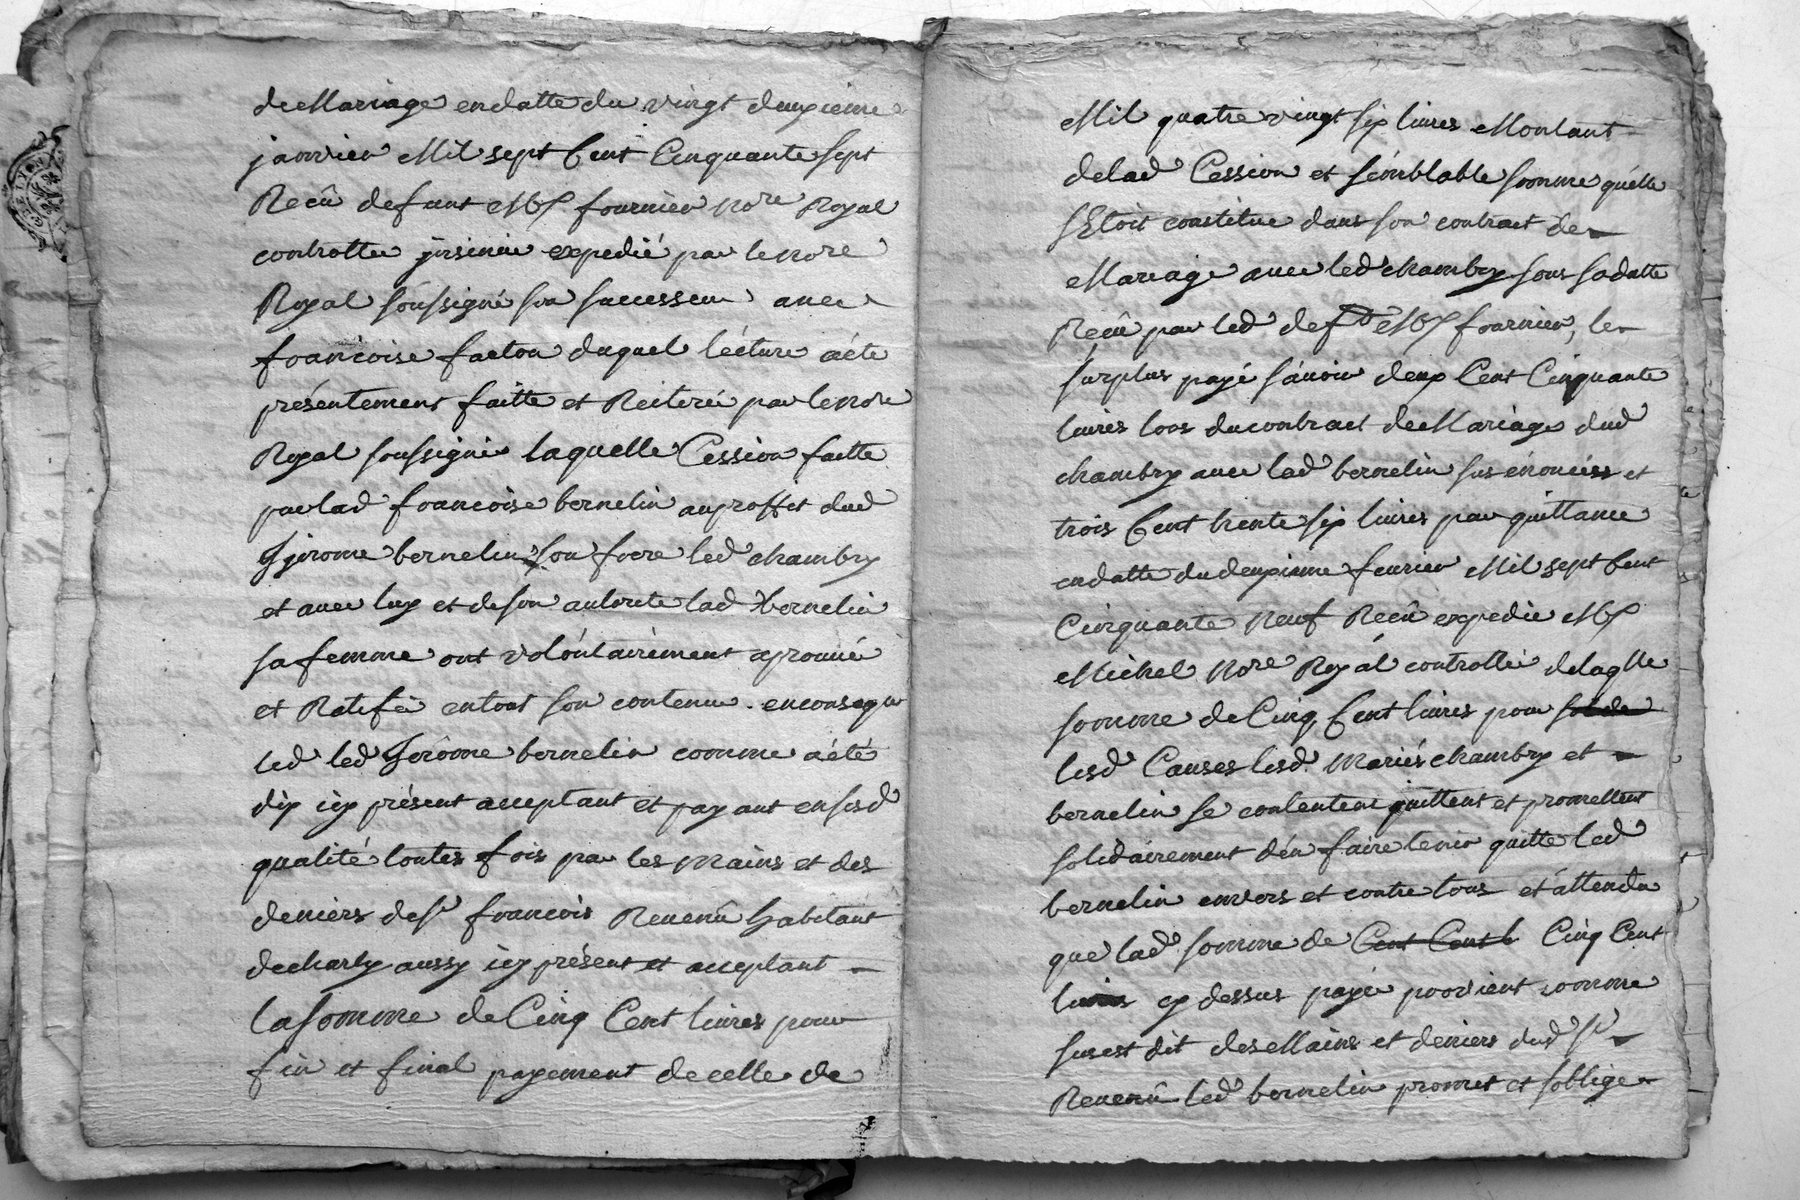 de Mariage en datte du vingt deuxieme
janvier Mil sept Cent Cinquante sept
Recû defunt Me fournier nore Royal
controllé insinüé expedié par le nore
Royal soussigné son successeur avec
francoise facton duquel lécture a été
présentement faitte et Reiterée par le nore
Royal soussigné laquelle Cession faitte
par lad francoise bernelin au proffit dud
Jjerome bernelin son frere led chambry
et avec luy et de son autorite lad bernelin
sa femme ont volóntairément aprouvé
et Ratifié en tout son contenu. en conseq
led led Jerôme bernelin comme a été
dit icy présent acceptant et payant en sesd
qualité toutes fois par les mains et des
deniers de sr francois Revenû habitant
de charly aussy icy présent et acceptant
la somme de Cinq Cent livres pour
fin et final payement de celle de
Mil quatre vingt six livres Montant
de lad Cession et sémblable somme qu'elle
s'Etoit constitué dans son contract de
Mariage avec led chambry sous sa datte
Recû par led deft Me fournier, le
surplus payé sávoir deux Cent Cinquante
livres lors du contract de Mariage dud
chambry avec lad bernelin sus énoncés et
trois Cent trente six livres par quittance
en datte du deuxieme fevrier Mil sept Cent
Cinquante Neuf Recû expedié Me
Michel Nore Royal controllé de laqlle
somme de Cinq Cent livres pour solde
lesd Causes lesd. Mariés chambry et
bernelin se contentent quittent et promettent
solidairement d'én faire tenir quitte led
bernelin envers et contre tous et attendu
que lad somme de Cent Cent Cinq Cent
livres cy dessus payé provient comme
sus est dit des Mains et deniers dud sr
Revenû led bernelin promet et s'oblige